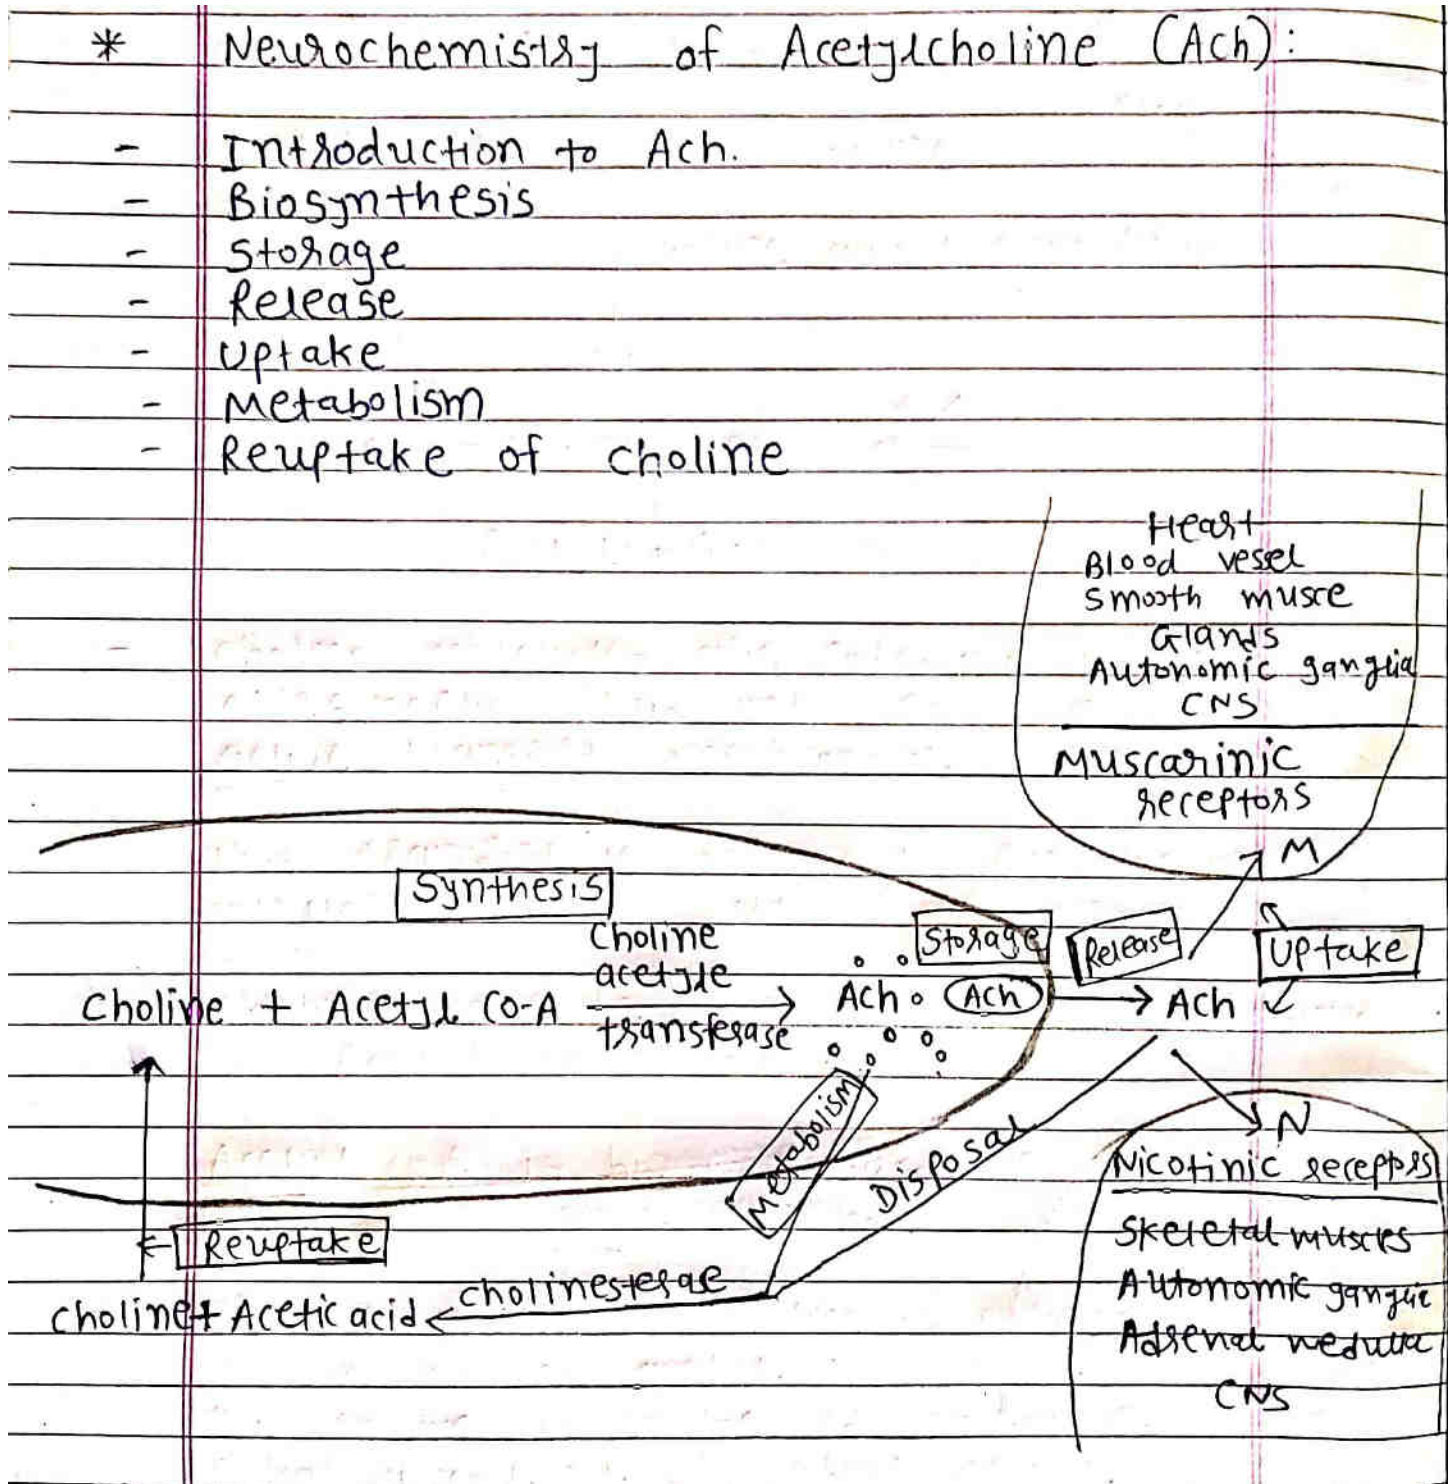 * Neurochemistry of Acetylcholine (Ach):
- Introduction to Ach.
- Biosynthesis
- Storage
- Release
- Uptake
- Metabolism
- Reuptake of choline
Heart
Blood vessel
Smooth musce
Glands
Autonomic ganglia
CNS
Muscarinic
receptors
M
Synthesis
Choline
acetyle
transferase
Storage
Release
Uptake
Choline + Acetyl Co-A
Ach
Ach
Ach
Metabolism
Disposal
N
Nicotinic receptors
Skeletal muscles
Autonomic ganglia
Adrenal medulla
CNS
Reuptake
cholinesterae
choline + Acetic acid